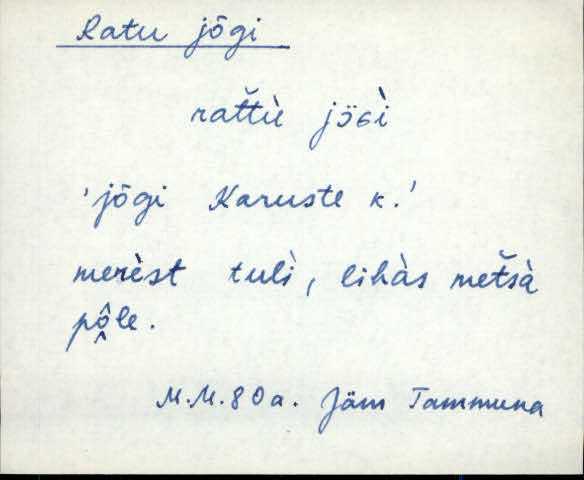 Ratu jõgi
rat̆t̆ù jöɢì
'jõgi Karuste k.'
merèst tulì, lihàs met̆sà
pô̭le.
M.M. 80a. Jäm Tammuna